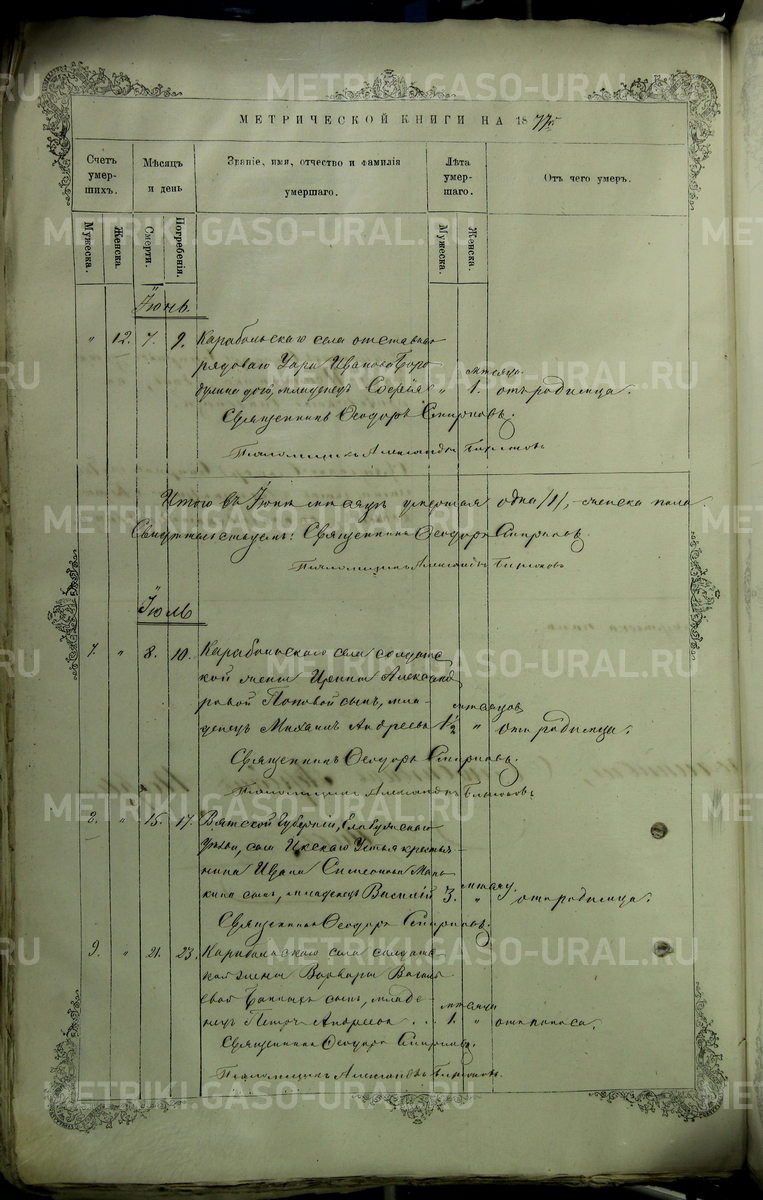 МЕТРИЧЕСКОЙ КНИГИ НА 1877
Счетъ умершихъ.
Мѣсяцъ и день
Званіе, имя, отчество и фамилія умершаго.
Лѣта умершаго.
Отъ чего умеръ.
Мужеска.
Женска.
Смерти.
Погребенія.
Мужеска.
Женска.
Іюнь
" 12. 7. 9. Карабольскаго села отставнаго
рядоваго Ивановa
дочь, младенецъ " 1. мѣсяца. отъ родимца.
Священникъ Ѳеодоръ Смирновъ.
Псаломщикъ Александръ
Итого въ Іюнѣ мѣсяцѣ умершая одна /1/, женска пола.
Свидѣтельствуемъ: Священникъ Ѳеодоръ Смирновъ.
Псаломщикъ Александръ
Іюль
7. " 8. 10. Карабольскаго села солдатс
кой жены Ирины Александ
ровой Поповой сынъ, мла-
денецъ Михаилъ Андреевъ 1½ мѣсяцовъ " отъ родимца.
Священникъ Ѳеодоръ Смирновъ.
Псаломщикъ Александръ
" 15. 17. Вятской губерніи, Елабужскаго
уѣзда, села Икскаго Устья крестья
нина Ивана Симеонова
сынъ, младенецъ Василій 3. мѣсяцъ. " отъ родимца.
Священникъ Ѳеодоръ Смирновъ.
9. " 21. 23. Карабольскаго села солдатс
кой жены Варвары Василь
евой сынъ, младе-
нецъ Петръ Андреевъ . . 1. мѣсяца " отъ поноса.
Священникъ Ѳеодоръ Смирновъ.
Псаломщикъ Александръ
METRIKI.GASO-URAL.RU